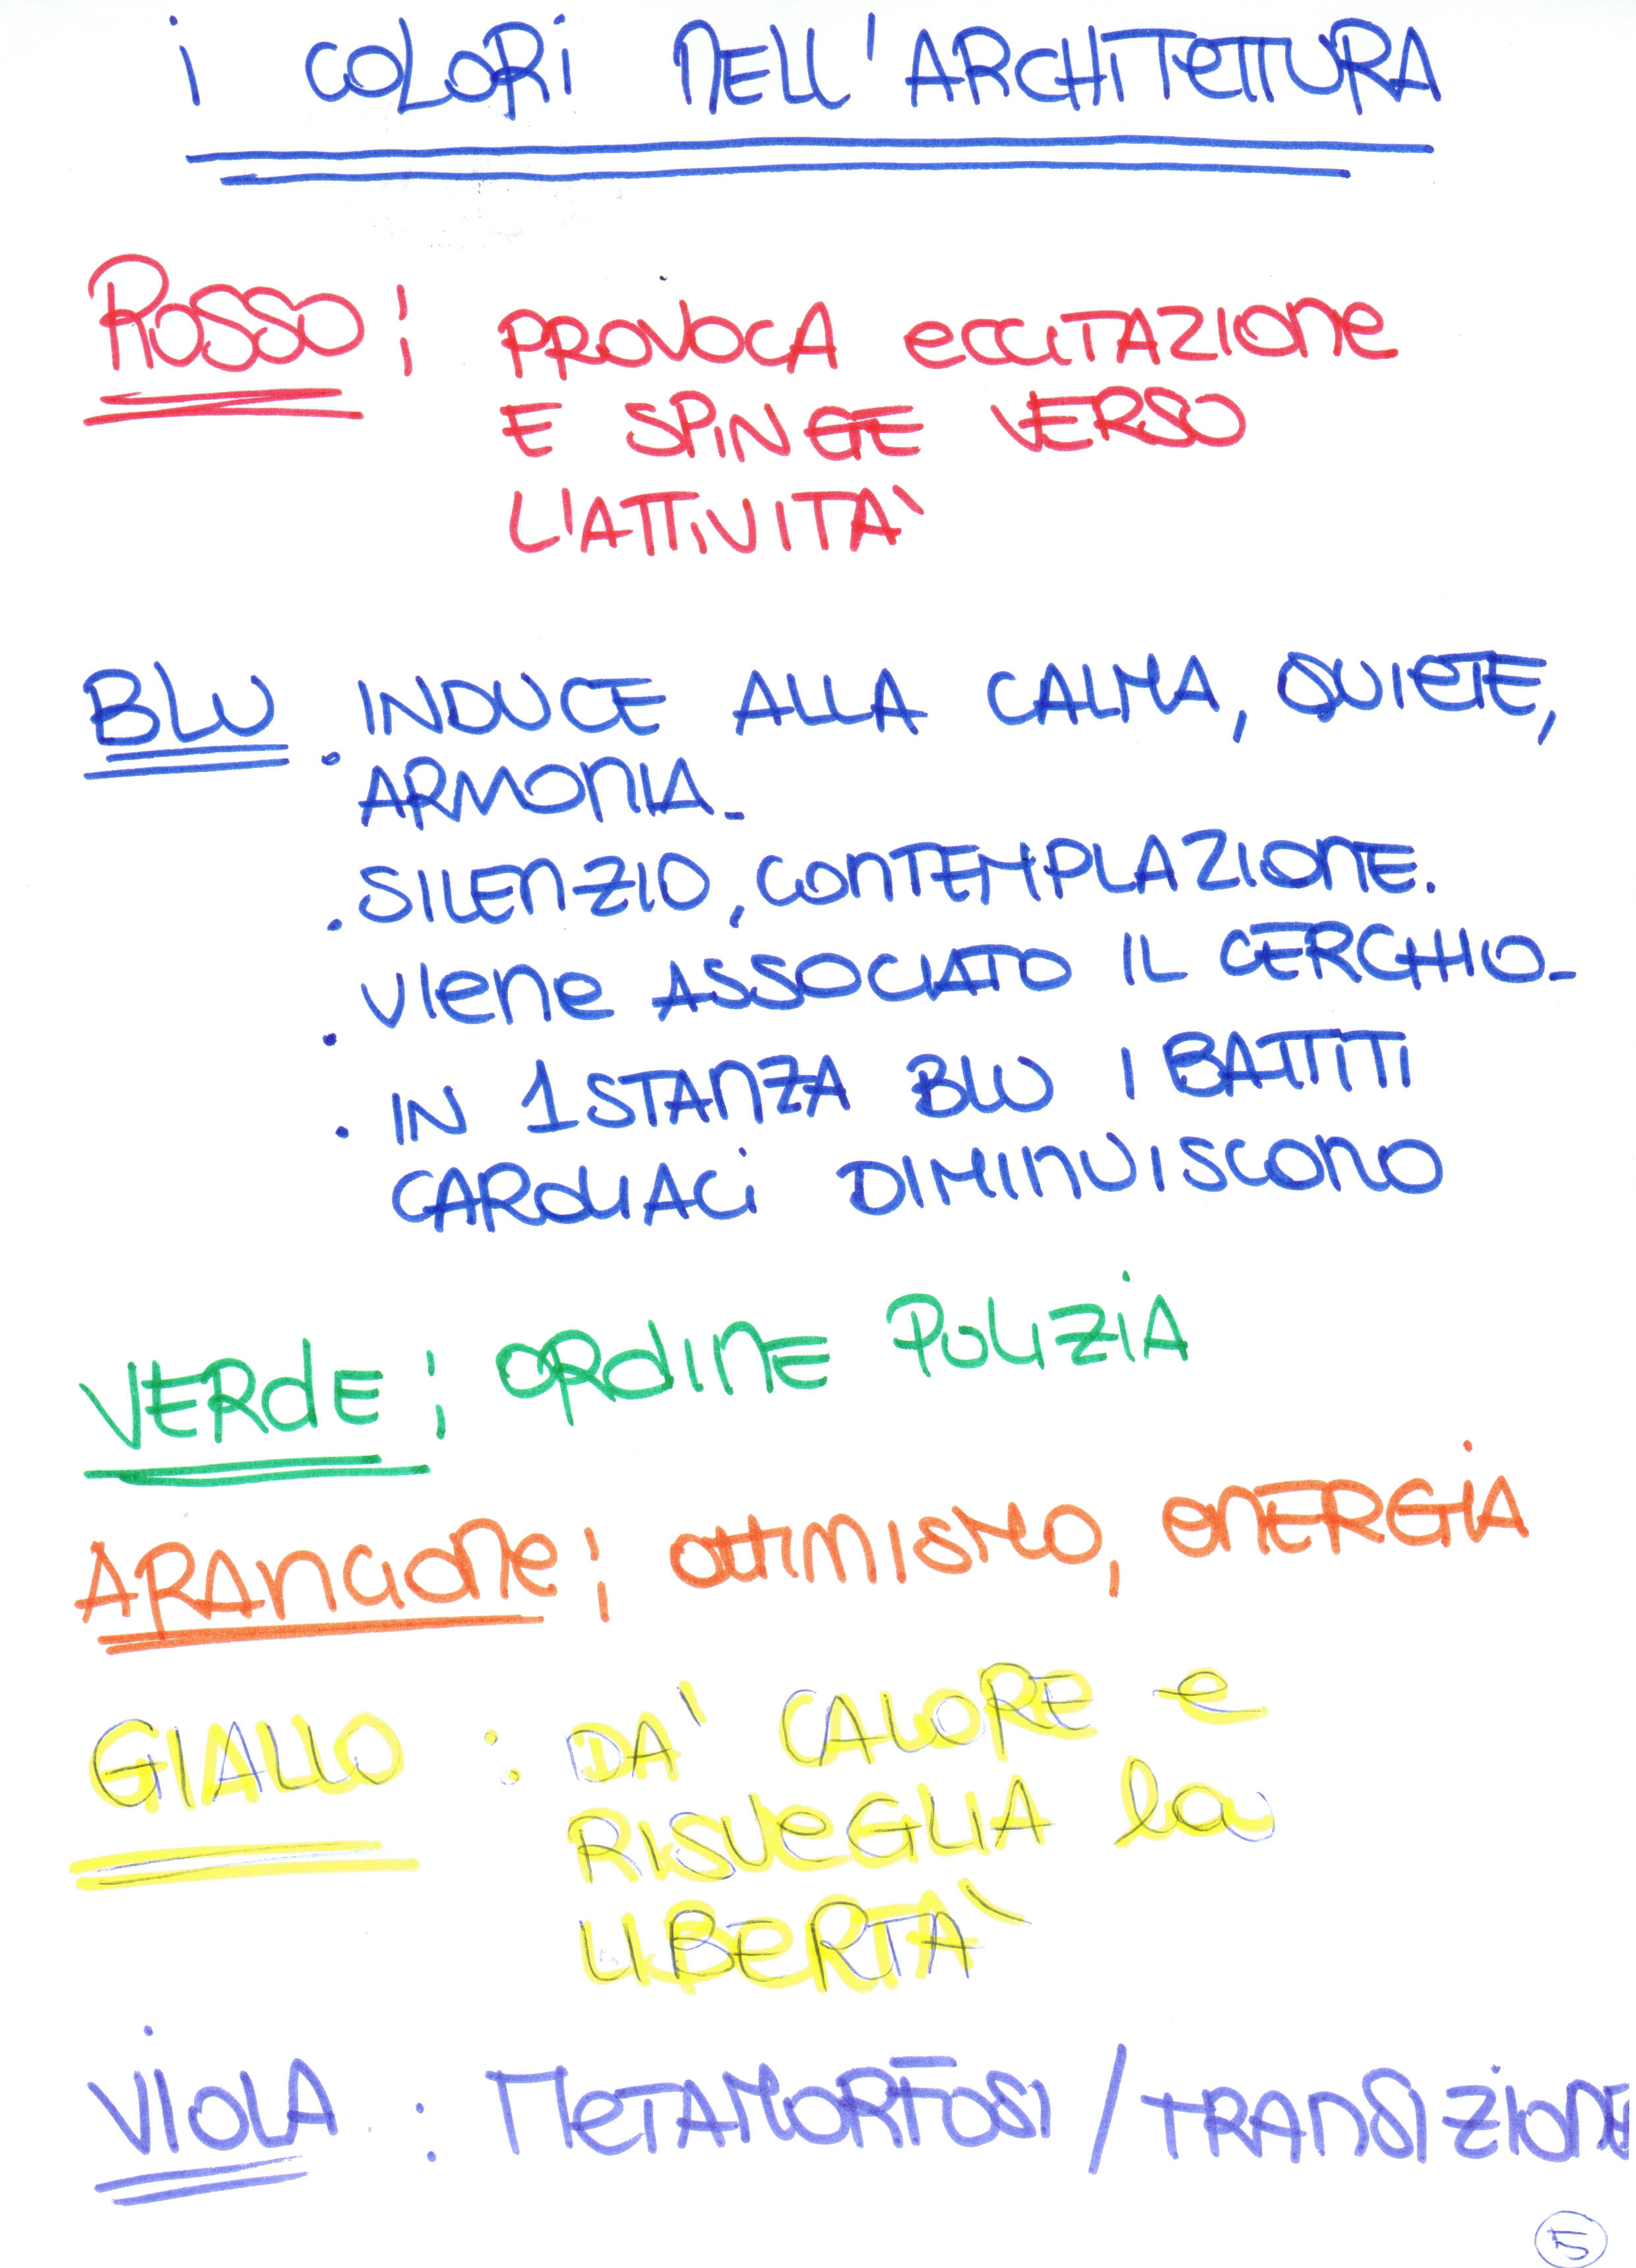 i COLORi NELL'ARCHITETTURA
ROSSO: PROVOCA ECCITAZIONE
E SPINGE VERSO
L'ATTIVITÀ
BLU . INDUCE ALLA CALMA, QUIETE,
ARMONIA.
. SILENZIO, CONTEMPLAZIONE.
. VIENE ASSOCIATO IL CERCHIO.
. IN 1 STANZA BLU I BATTITI
CARDIACi DIMINUISCONO
VERdE: ORdINE PULIZiA
ARANCIONE: OttiMISMO, ENERGIA
GIALLO : DA' CALORE e
RISVEGLIA la
LIBERTÀ
VIOLA : METAMORFOSI / TRANSIZIONE